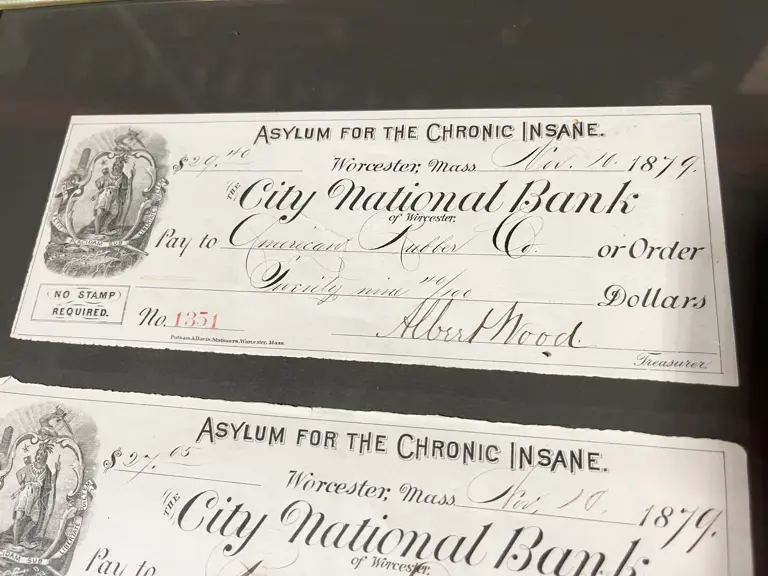 ASYLUM FOR THE CHRONIC INSANE.
$29.40 Worcester, Mass Nov. 10. 1879.
THE City National Bank
of Worcester.
Pay to American Rubber Co. or Order
Twenty nine 40/100 Dollars
NO STAMP REQUIRED.
No. 1351 Albert Wood
Putnam & Davis, Stationers, Worcester, Mass.
Treasurer.
ASYLUM FOR THE CHRONIC INSANE.
$27.05 Worcester, Mass Nov. 10. 1879.
THE City National Bank
of Worcester.
Pay to